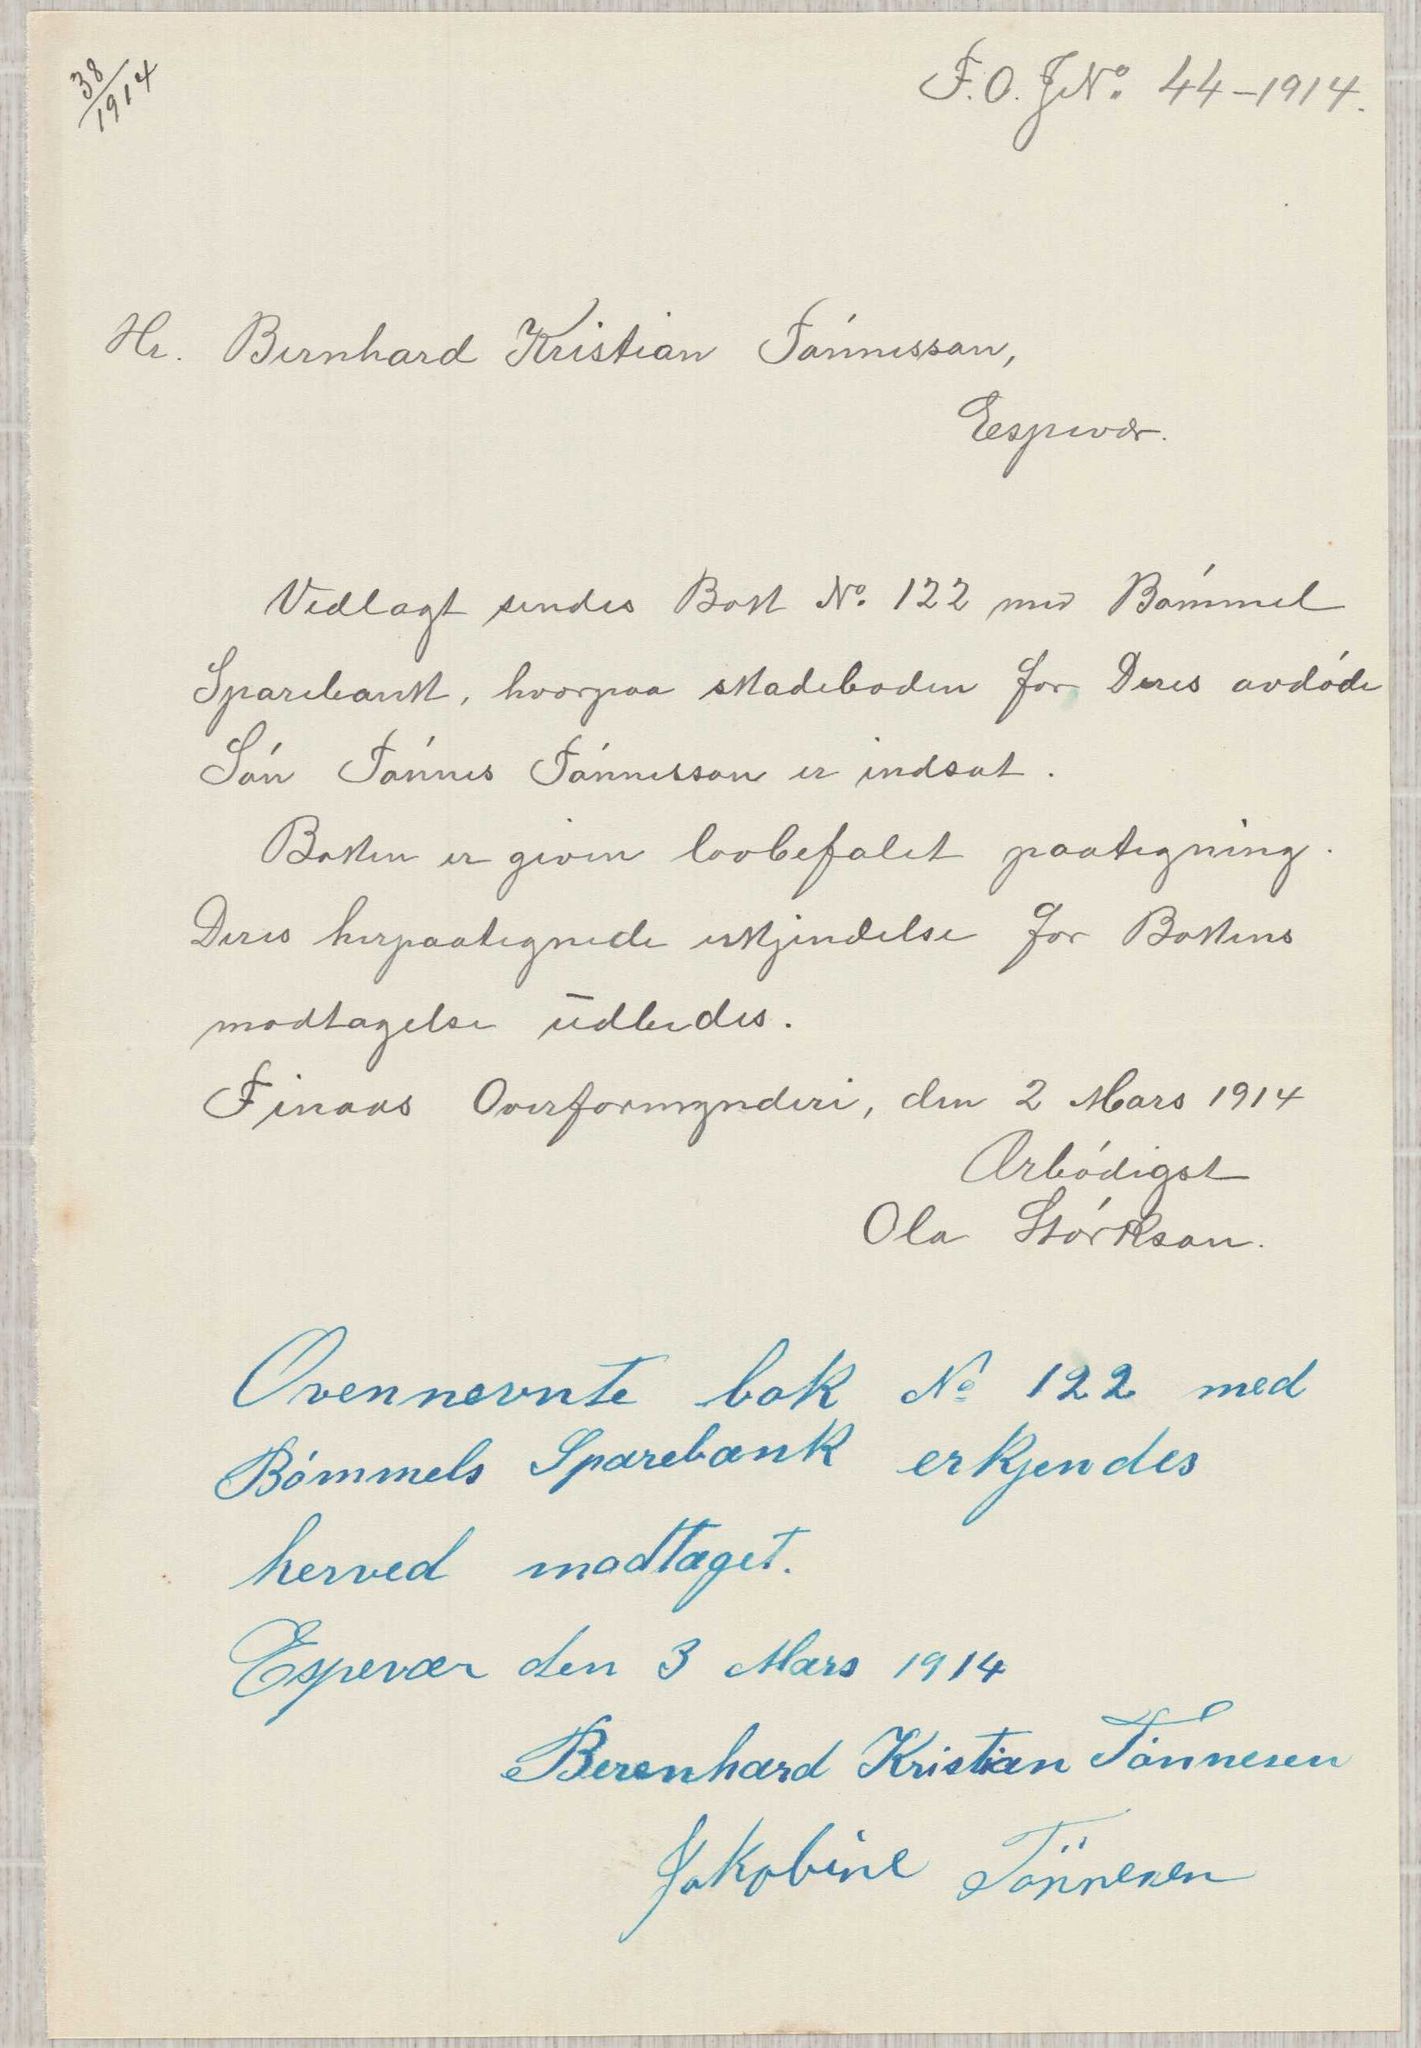 38/1914
F.O. J.No. 44-1914.
Hr. Bernhard Kristian Tónnesson,
Espevær.
Vedlagt sendes Bok No. 122 med Bómmel
Sparebank, hvorpaa skadeboden for Deres avdóde
Són Tónnes Tónnesson er indsat.
Boken er given lovbefalet paategning.
Deres herpaategnede erkjendelse for Bokens
modtagelse udbedes.
Finaas Overformynderi, den 2 Mars 1914
Ærbódigst
Ola Stórkson.
Ovennevnte bok No 122 med
Bómmels Sparebank erkjendes
herved modtaget.
Espevær den 3 Mars 1914
Berenhard Kristian Tónnesen
Jakobine Tönnesen